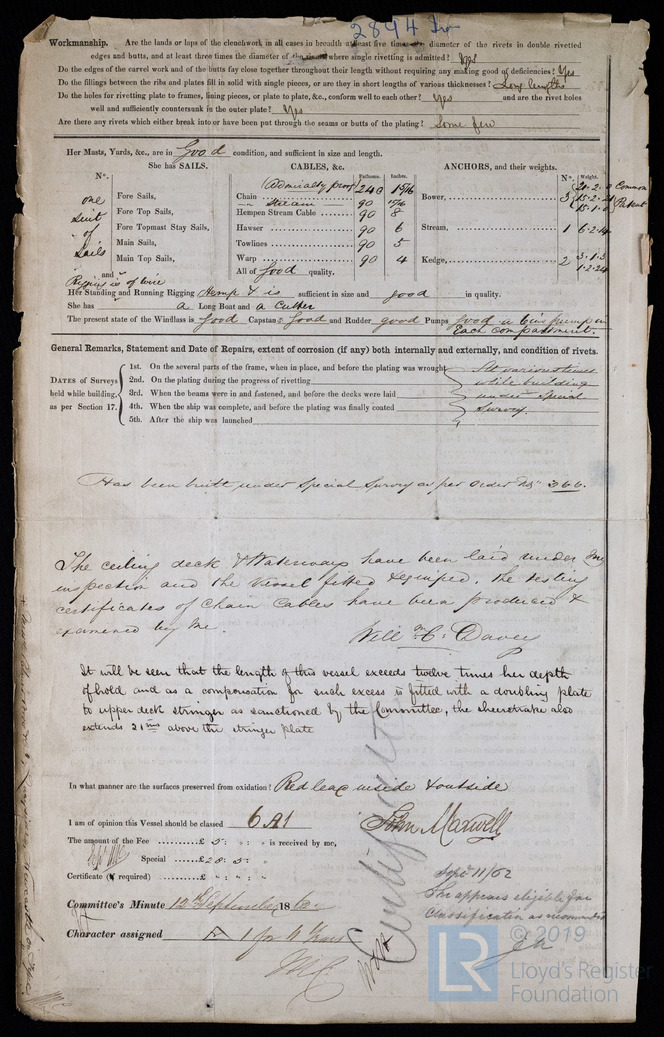 2894 Iro
Workmanship. Are the lands or laps of the clenchwork in all cases in breadth at least five times the diameter of the rivets in double rivetted
edges and butts, and at least three times the diameter of the rivets where single rivetting is admitted? Yes
Do the edges of the carvel work and of the butts fay close together throughout their length without requiring any making good of deficiencies? Yes
Do the fillings between the ribs and plates fill in solid with single pieces, or are they in short lengths of various thicknesses? Long lengths
Do the holes for rivetting plate to frames, lining pieces, or plate to plate, &c., conform well to each other? Yes and are the rivet holes
well and sufficiently countersunk in the outer plate? Yes
Are there any rivets which either break into or have been put through the seams or butts of the plating? Some few
Her Masts, Yards, &c., are in Good condition, and sufficient in size and length.
She has SAILS. CABLES, &c. ANCHORS, and their weights.
N°. Fathoms. Inches. N°. Weight.
Admiralty proof
one Suit of Sails and
Fore Sails,
Fore Top Sails,
Fore Topmast Stay Sails,
Main Sails,
Main Top Sails,
Chain 240 1 9/16
Stream 90
Hempen Stream Cable 90 8
Hawser 90 6
Towlines 90 5
Warp 90 4
All of Good quality.
Bower, 3 15·2·21 15·1·0 Common Patent
Stream, 1 6·2·14
Kedge, 2 3·1·3 1·2·24
Rigging is of wire
Her Standing and Running Rigging Hemp & is sufficient in size and good in quality.
She has a Long Boat and a Cutter
The present state of the Windlass is Good Capstan Good and Rudder good Pumps Good a bilge pump in
Each compartment.
General Remarks, Statement and Date of Repairs, extent of corrosion (if any) both internally and externally, and condition of rivets.
DATES of Surveys held while building, as per Section 17.
1st. On the several parts of the frame, when in place, and before the plating was wrought
2nd. On the plating during the progress of rivetting
3rd. When the beams were in and fastened, and before the decks were laid
4th. When the ship was complete, and before the plating was finally coated
5th. After the ship was launched
At various times
while building
under Special
Survey.
Has been built under Special Survey as per order No. 366.
The ceiling deck & Waterways have been laid under my
inspection and the vessel fitted & equiped. The testing
certificates of Chain Cables have been produced &
examined by me.
Willm C. Davey
It will be seen that the length of this vessel exceeds twelve times her depth
of hold and as a compensation for such excess is fitted with a doubling plate
to upper deck stringer as sanctioned by the Committee, the sheerstrake also
extends 21 ins above the stringer plate
In what manner are the surfaces preserved from oxidation? Red lead inside & outside
I am of opinion this Vessel should be classed 6 A1
John Maxwell
The amount of the Fee £ 5 : „ : „ is received by me,
Special £ 28 : 5 : „
Certificate (if required) £ „ : „ : „
Sept 11/62
She appears eligible for
Classification as recommended
Committee's Minute 12th September 1862
Character assigned A 1 for 6 Years
© 2019
LR Lloyd's Register
Foundation